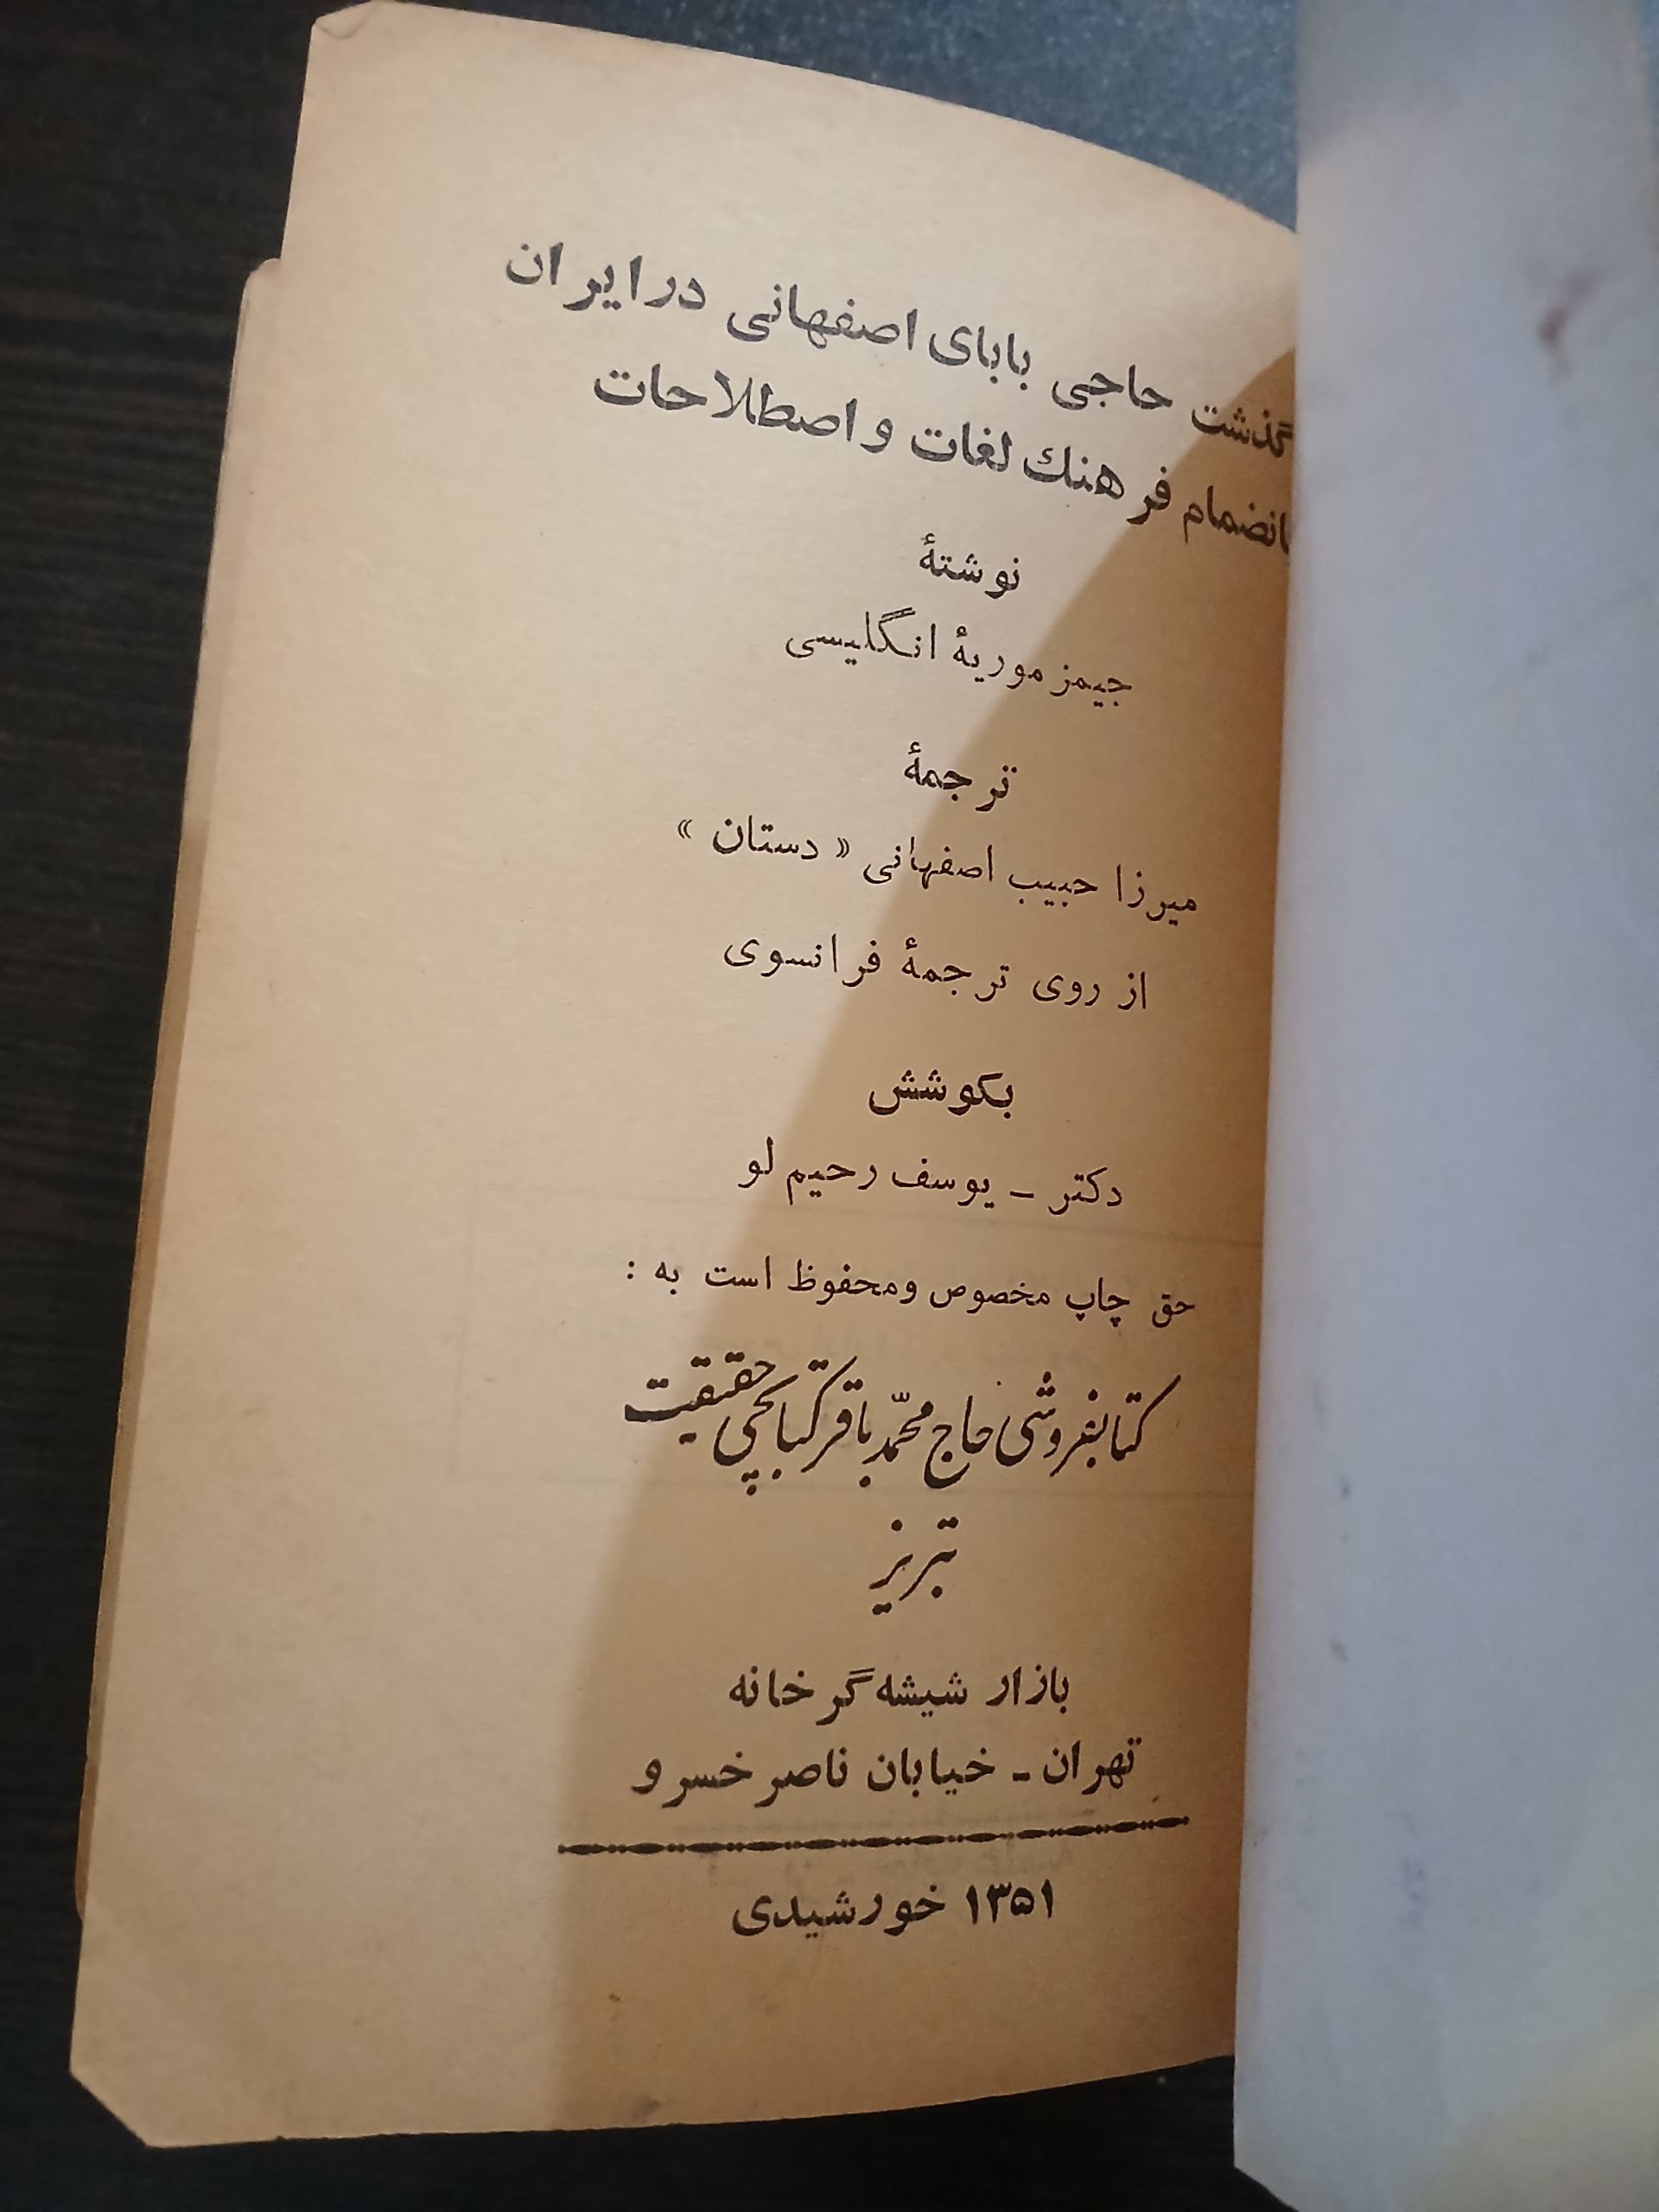 گذشت حاجی بابای اصفهانی در ایران
بانضمام فرهنك لغات و اصطلاحات
نوشتهٔ
جیمز موریهٔ انگلیسی
ترجمهٔ
میرزا حبیب اصفهانی « دستان »
از روی ترجمهٔ فرانسوی
بکوشش
دکتر ـ یوسف رحیم لو
حق چاپ مخصوص ومحفوظ است به :
کتابفروشی حاج محمّد باقر کتابچی حقیقت
تبریز
بازار شیشه گر خانه
تهران ـ خیابان ناصر خسرو
۱۳۵۱ خورشیدی